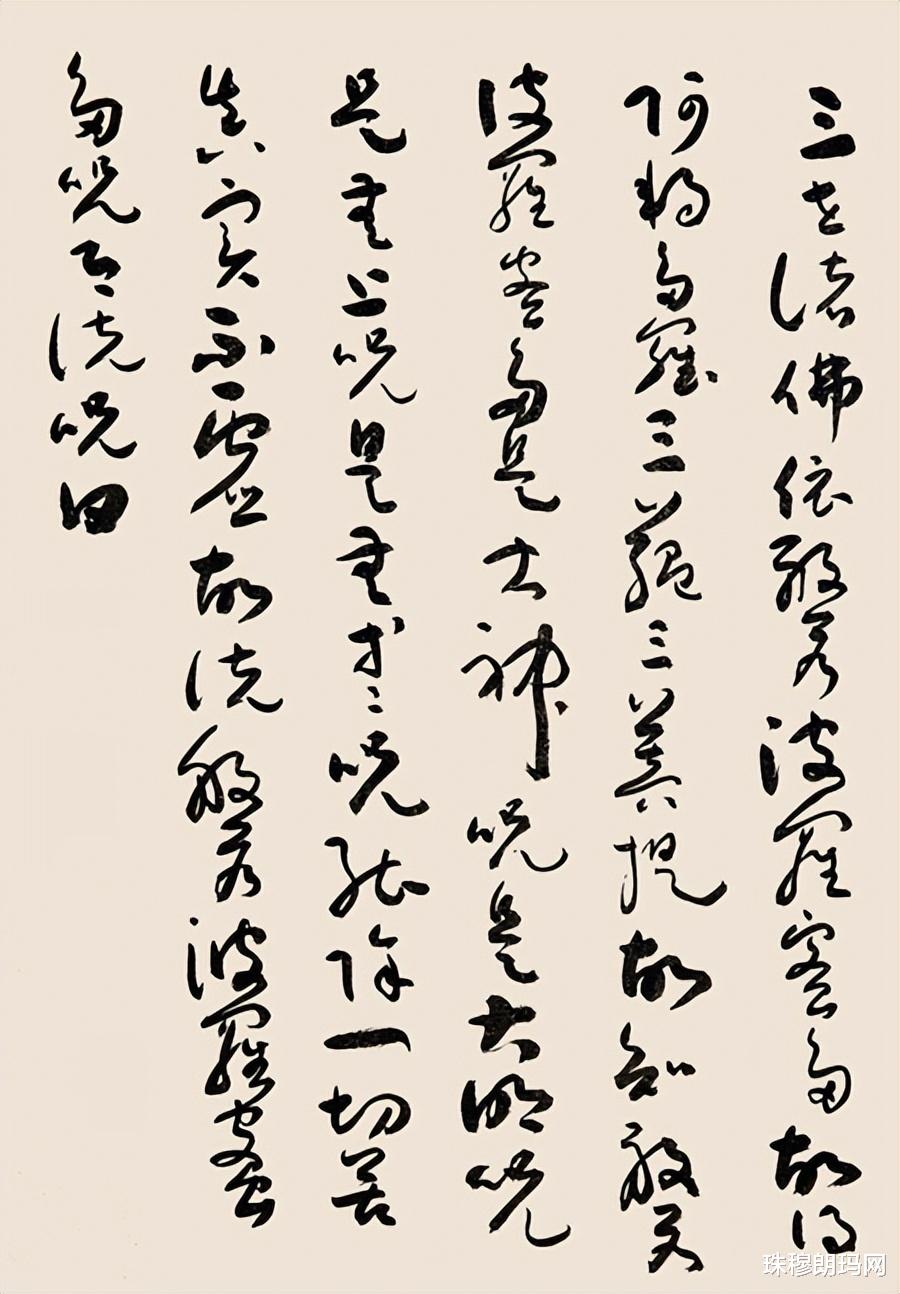 三世諸佛依般若波羅蜜多故得
阿耨多羅三藐三菩提故知般若
波羅蜜多是大神咒是大明咒
是無上咒是無等等咒能除一切苦
真實不虛故說般若波羅蜜
多咒即說咒曰
珠穆朗玛网